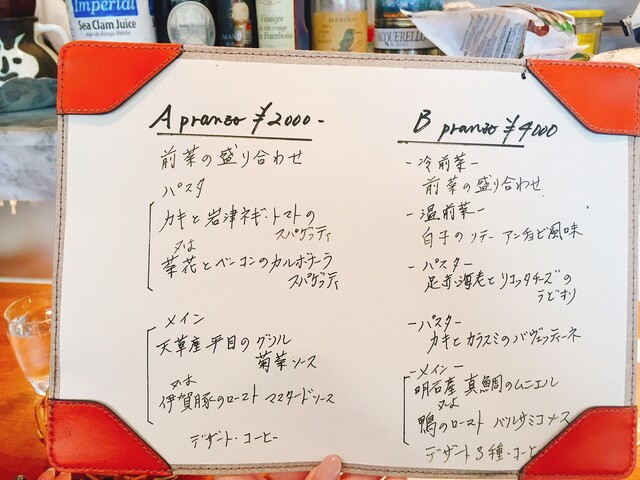 Imperial
Sea Clam Juice
Vinaigre
Framboise
ACQUERELLO
A pranzo ¥2000-
前菜の盛り合わせ
パスタ
カキと岩津ネギ・トマトの
スパゲッティ
又は
菜花とベーコンのカルボナーラ
スパゲッティ
メイン
天草産平目のグリル
菊菜ソース
又は
伊賀豚のロースト マスタードソース
デザート・コーヒー
B pranzo ¥4000
-冷前菜-
前菜の盛り合わせ
-温前菜-
白子のソテー アンチョビ風味
-パスター
足赤海老とリコッタチーズの
ラビオリ
-パスター
カキとカラスミのバヴェッティーネ
-メイン-
明石産 真鯛のムニエル
又は
鴨のロースト バルサミコソース
デザート3種・コーヒ